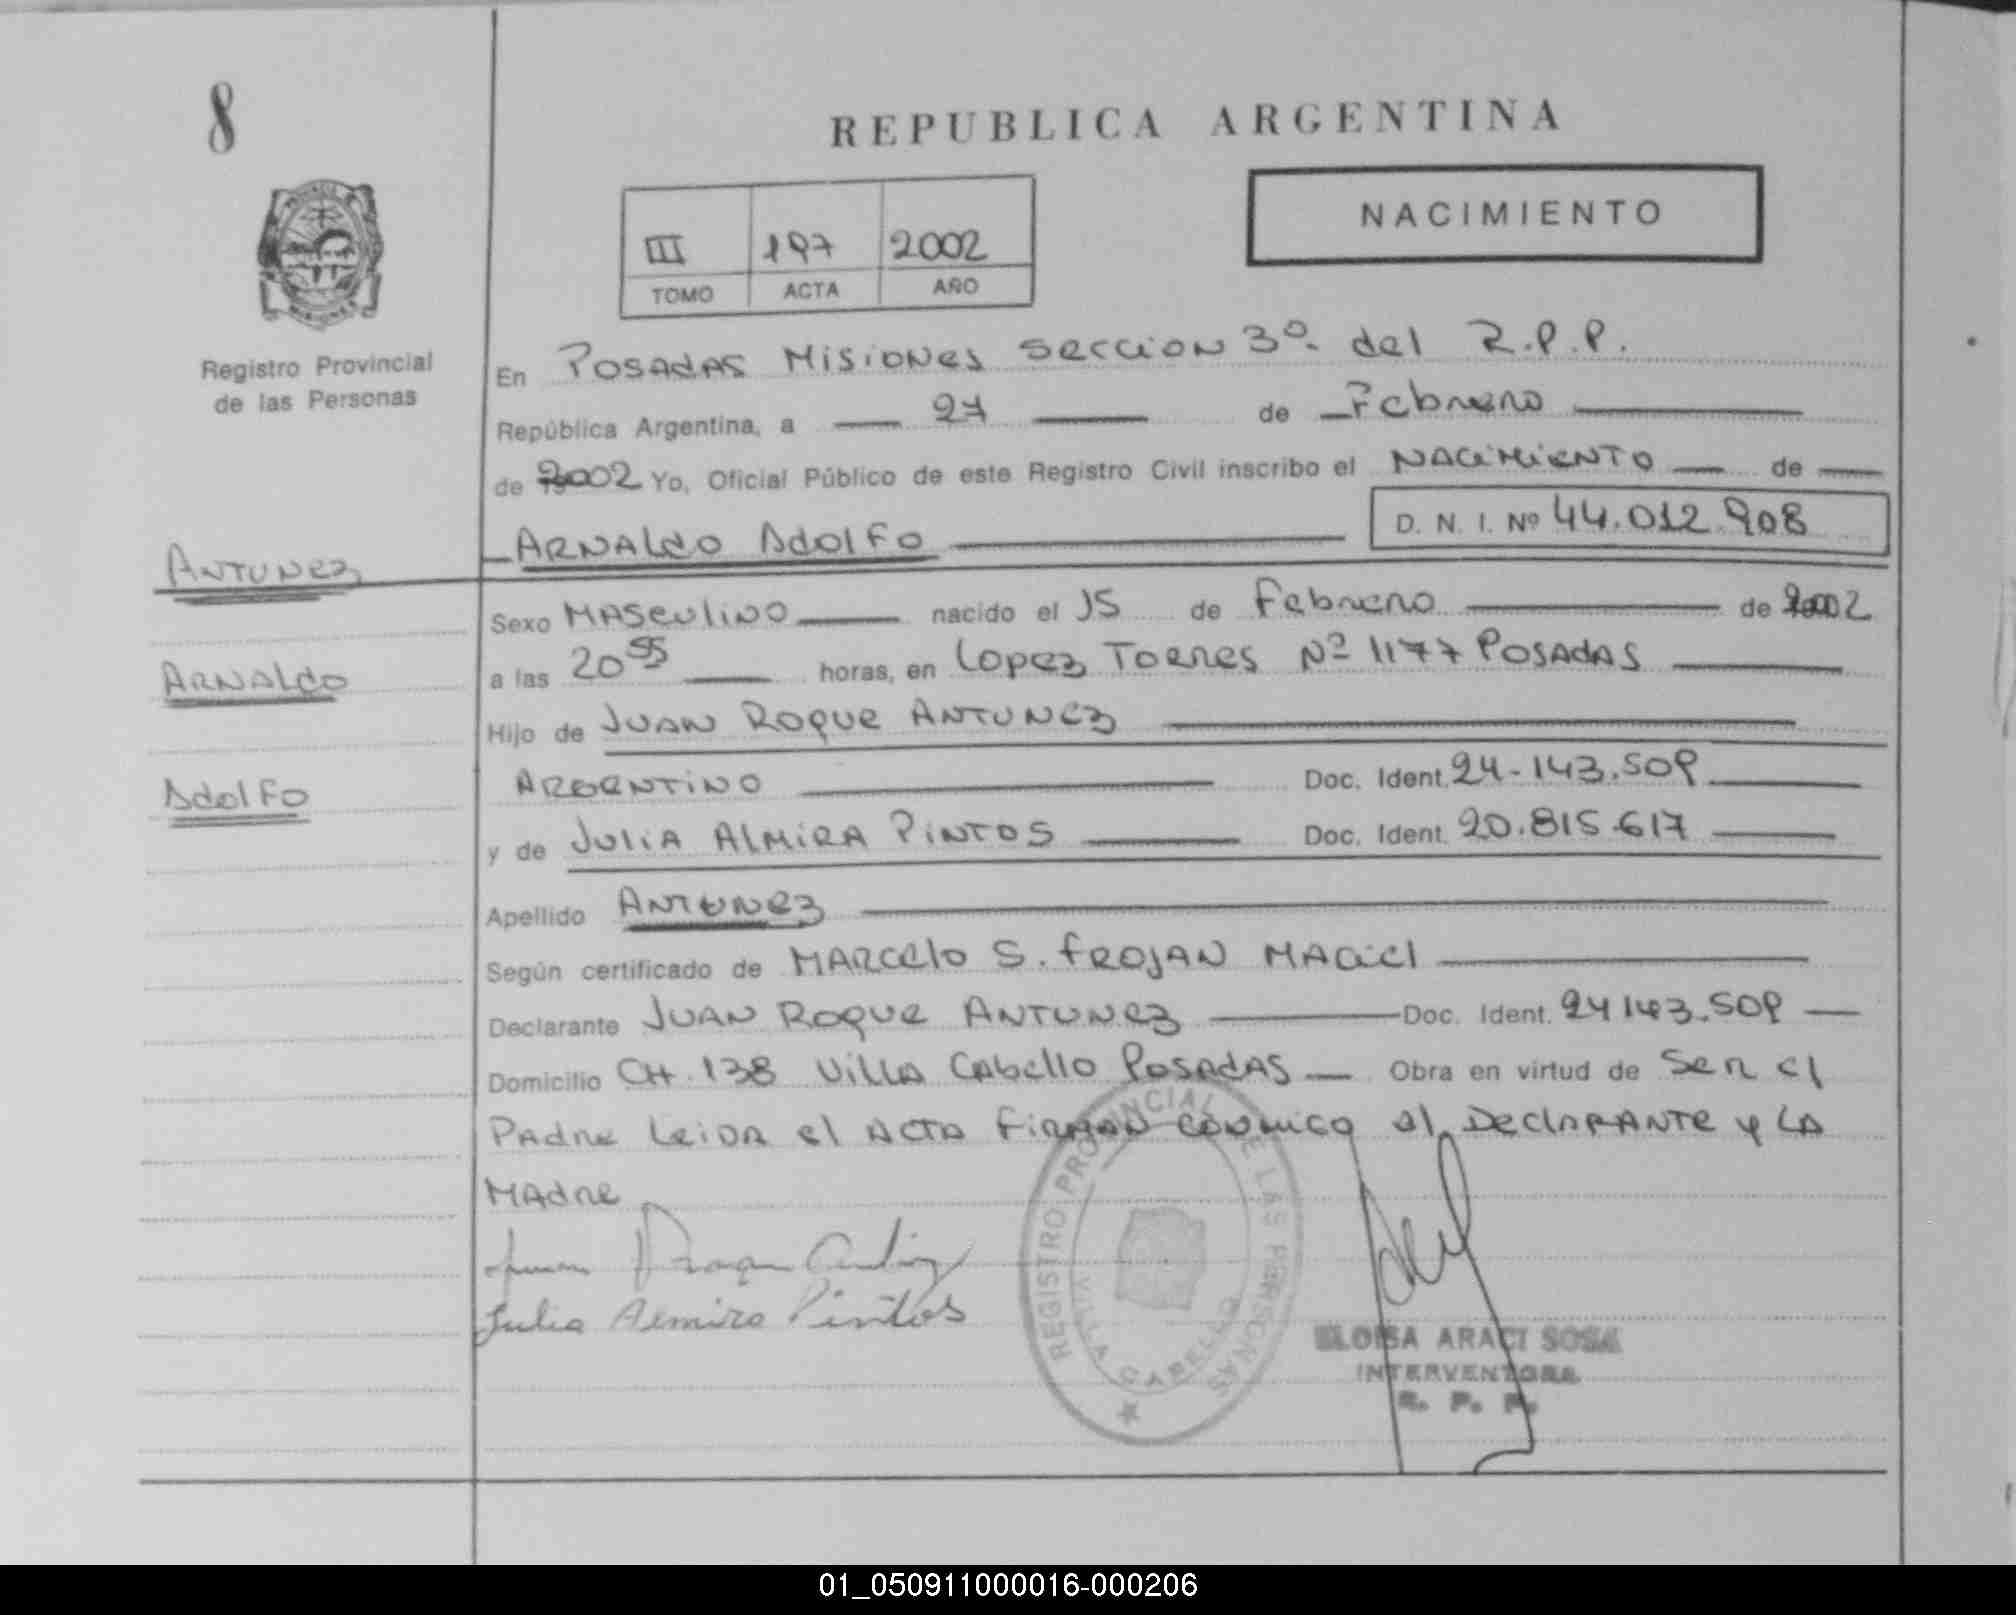 8
REPUBLICA ARGENTINA
NACIMIENTO
III 197 2002
TOMO ACTA AÑO
Registro Provincial
de las Personas
En POSADAS MISIONES SECCION 3º del R.P.P.
República Argentina, a 27 de Febrero
de 2002 Yo, Oficial Público de este Registro Civil inscribo el NACIMIENTO de
ARNALDO ADOLFO D. N. I. Nº 44.012.908
ANTUNEZ
ARNALDO
ADOLFO
Sexo MASCULINO nacido el 15 de Febrero de 2002
a las 20 55 horas, en Lopez Torres Nº 1177 POSADAS
Hijo de JUAN ROQUE ANTUNEZ
ARGENTINO Doc. Ident. 24-143.509
y de JULIA ALMIRA PINTOS Doc. Ident. 20.815.617
Apellido ANTUNEZ
Según certificado de MARCELO S. FROJAN MACIEL
Declarante JUAN ROQUE ANTUNEZ Doc. Ident. 24143.509
Domicilio CH. 138 VILLA CABELLO POSADAS Obra en virtud de Ser el
Padre Leida el ACTA FIRMAN CONMIGO el DECLARANTE y LA
MADRE
Juan Roque Antunez
Julia Almira Pintos
REGISTRO PROVINCIAL DE LAS PERSONAS
VILLA CABELLO
ELOISA ARACI SOSA
INTERVENTORA
R. P. P.
01_050911000016-000206